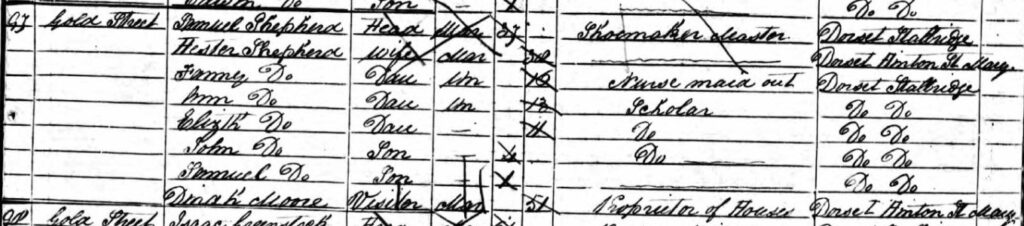 Do Son Do Do
97 Gold Street Samuel Shepherd Head Mar 37 Shoemaker Master Dorset Stalbridge
Hester Shepherd Wife Mar 38 Dorset Hinton St Mary
Fanney Do Dau Un Nurse maid out Dorset Stalbridge
Ann Do Dau Un 13 Scholar Do Do
Elizth Do Dau — 11 Do Do Do
John Do Son Do Do Do
Samuel Do Son Do Do
Dinah Moore Visitor Mar 51 Proprietor of Houses Dorset Hinton St Mary
98 Gold Street Isaac